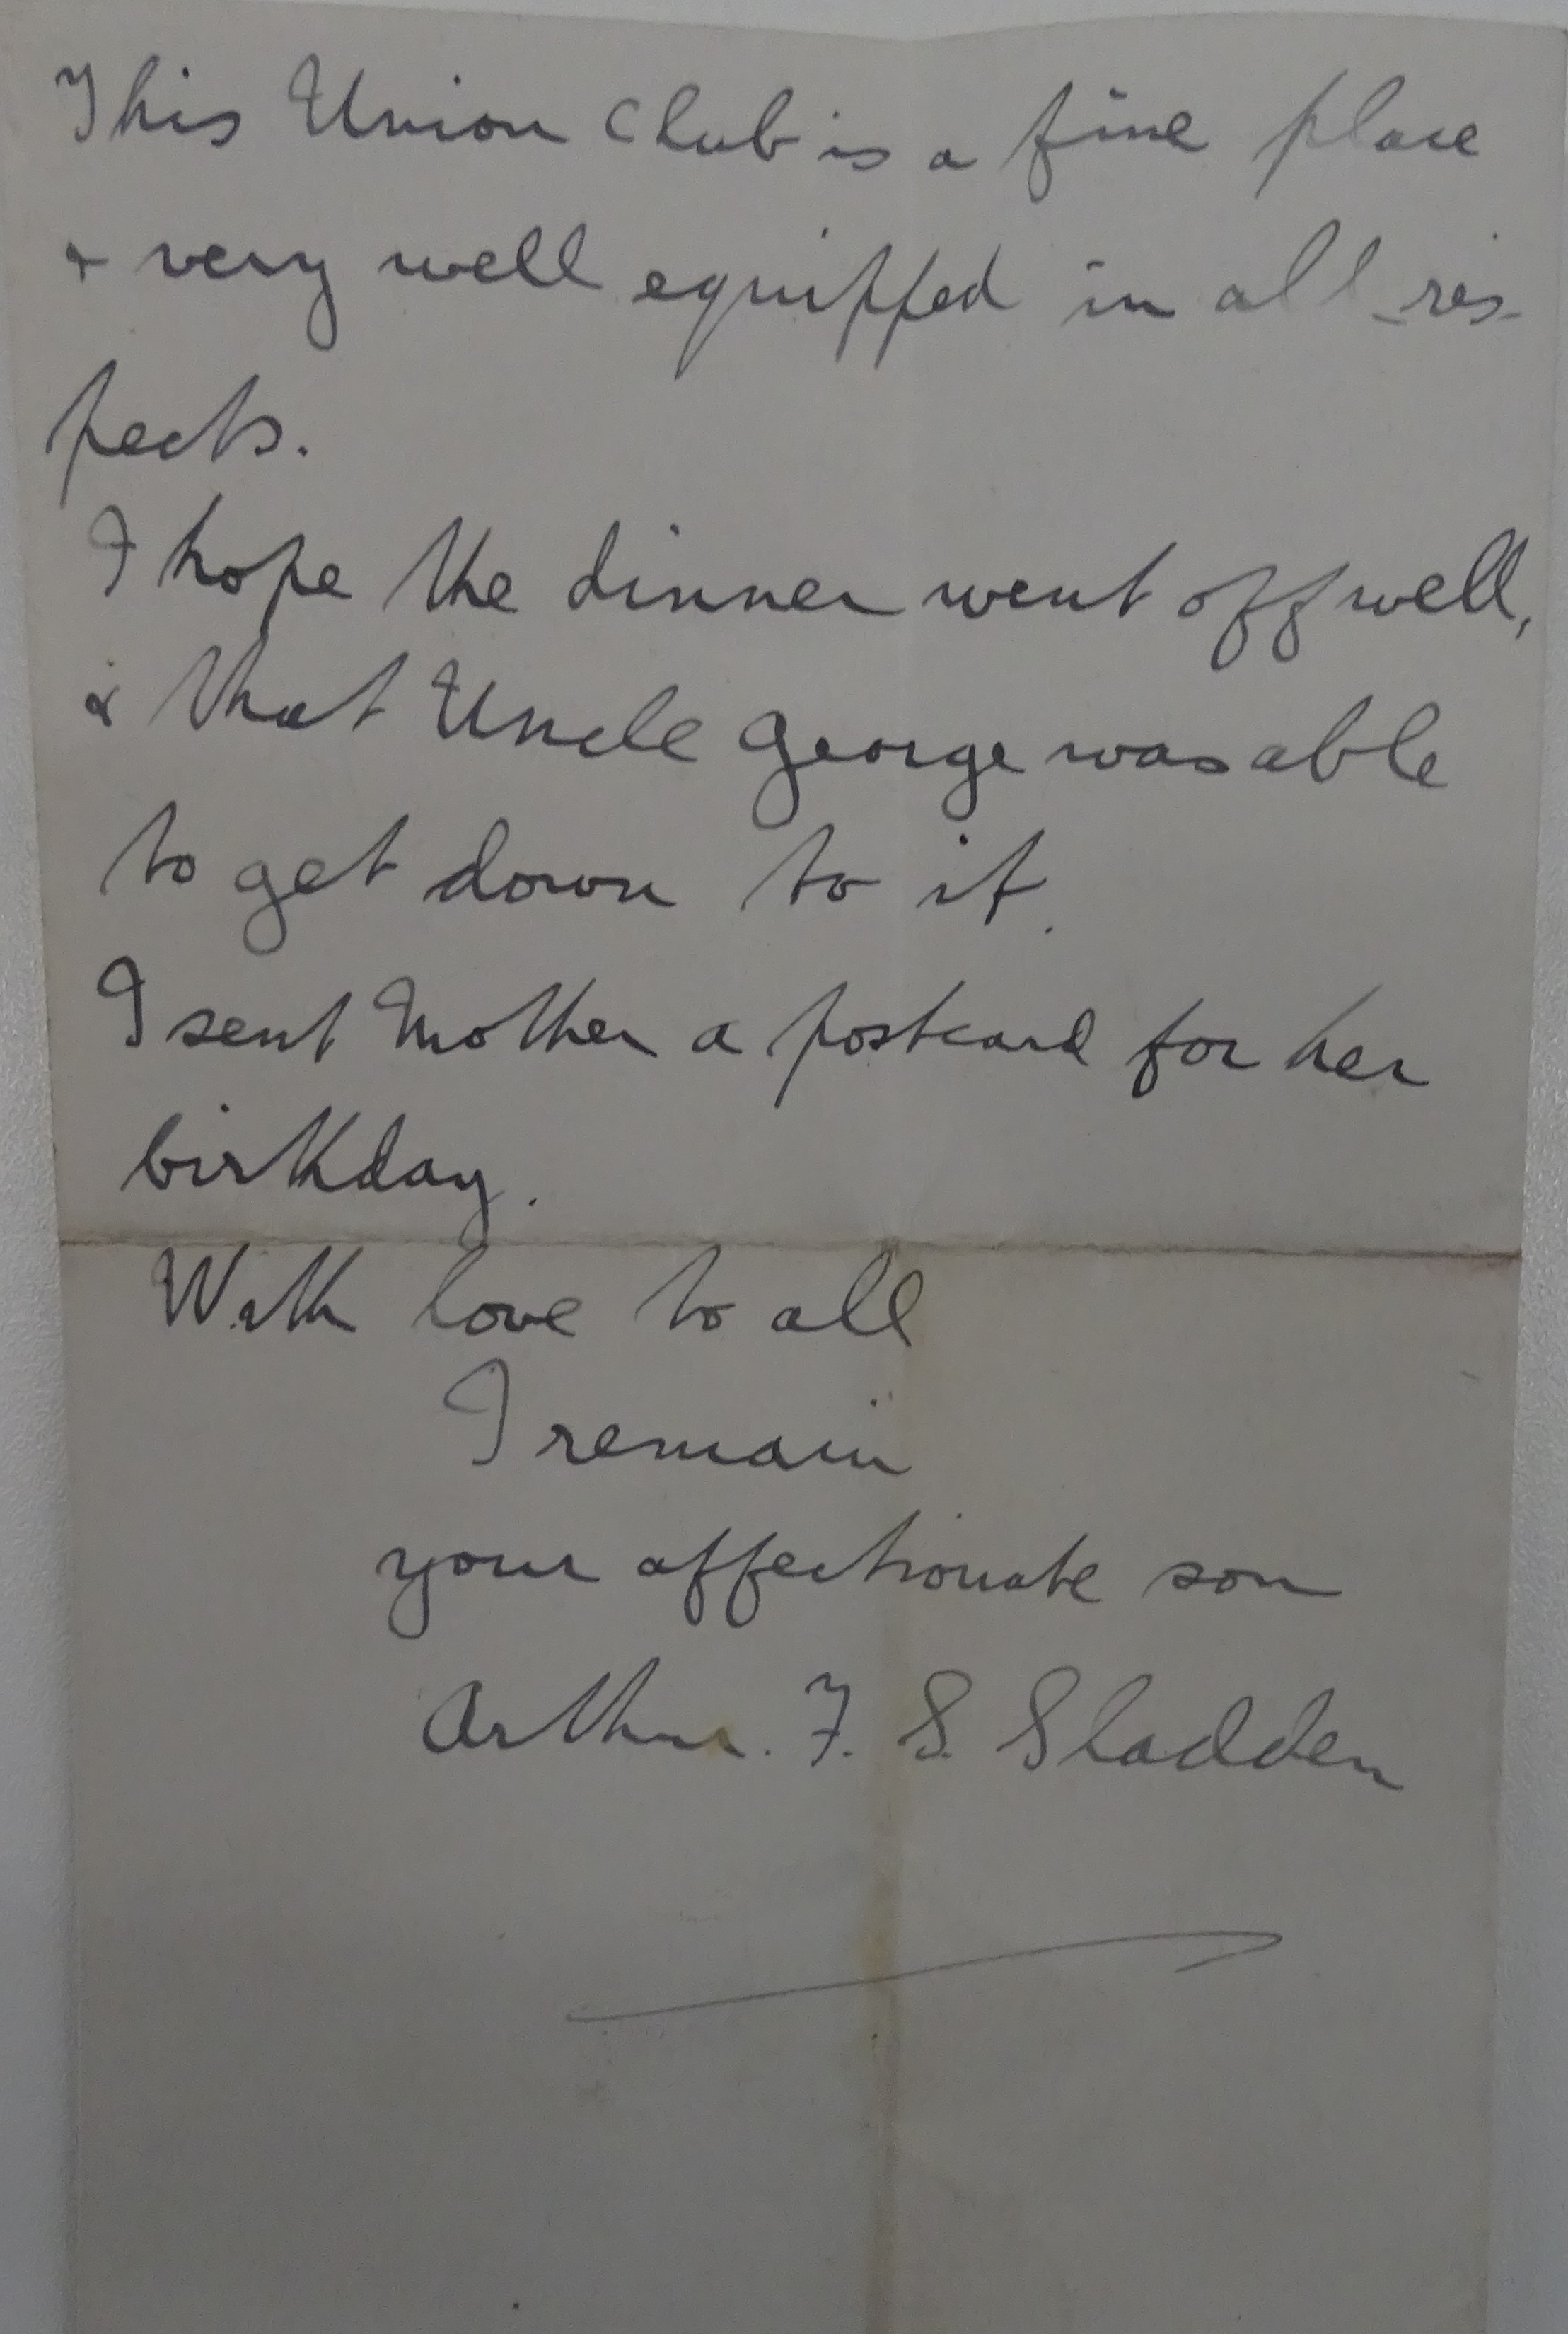 This Union Club is a fine place
& very well equipped in all res-
pects.
I hope the dinner went off well,
& that Uncle George was able
to get down to it.
I sent Mother a postcard for her
birthday.
With love to all
I remain
your affectionate son
Arthur. F. S. Sladden